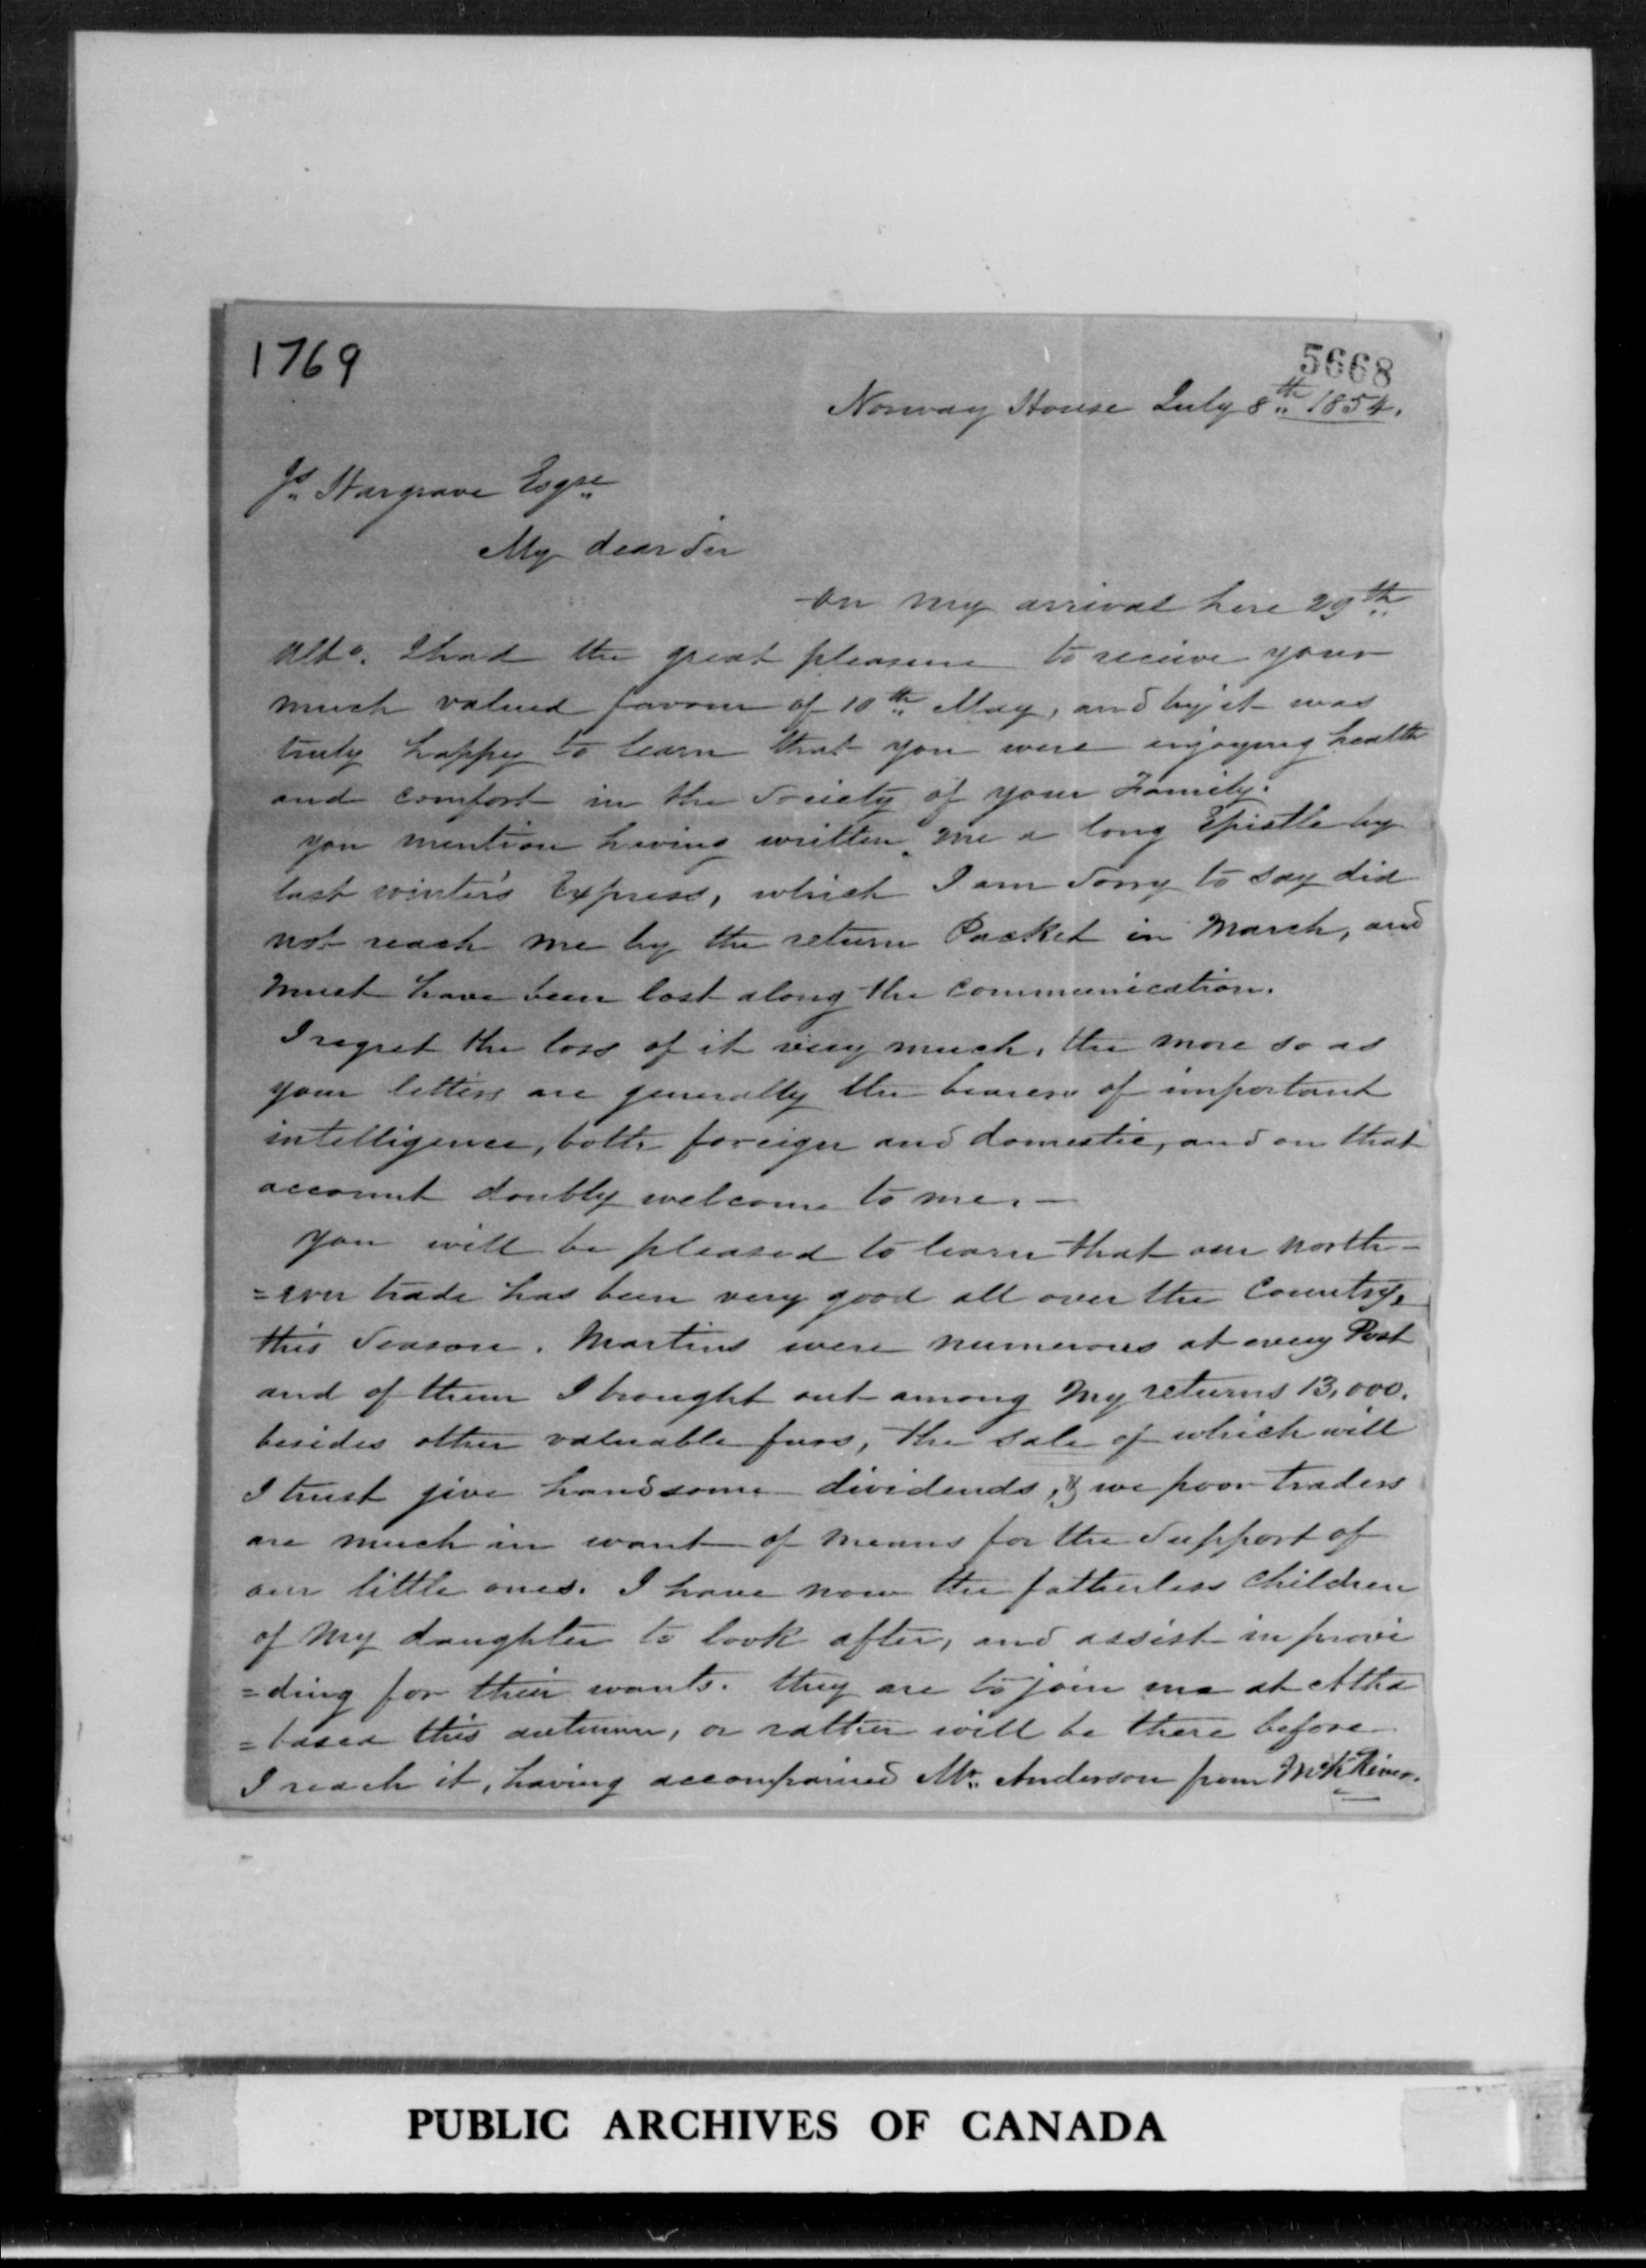 1769
5668
Norway House July 8th 1854.
Js Hargrave Esqre
My dear Sir
On my arrival here 29th
Ulto. I had the great pleasure to receive your
much valued favour of 10th May, and by it was
truly happy to learn that you were enjoying health
and comfort in the Society of your Family.
you mention having written me a long Epistle by
last winter's Express, which I am Sorry to say did
not reach me by the return Packet in March, and
must have been lost along the Communication.
I regret the loss of it very much, the more so as
your letters are generally the bearers of important
intelligence, both foreign and domestic, and on that
account doubly welcome to me. —
You will be pleased to learn that our north-
=ern trade has been very good all over the Country,
this Season. Martins were numerous at every Post
and of them I brought out among my returns 13,000.
besides other valuable furs, the sale of which will
I trust give handsome dividends, & we poor traders
are much in want of means for the Support of
our little ones. I have now the fatherless Children
of my daughter to look after, and assist in provi
=ding for their wants. they are to join me at Atha
=basca this autumn, or rather will be there before
I reach it, having accompained Mr. Anderson from McK River.
PUBLIC ARCHIVES OF CANADA